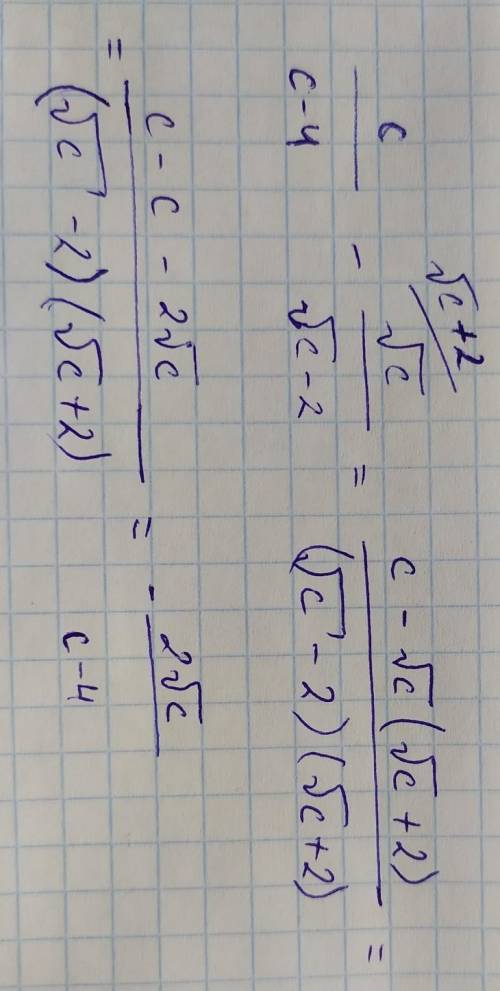 c/(c-4) - √c/(√c-2) ^(√c+2) = (c-√c(√c+2))/((√c-2)(√c+2)) =
= (c-c-2√c)/((√c-2)(√c+2)) = -2√c/(c-4)